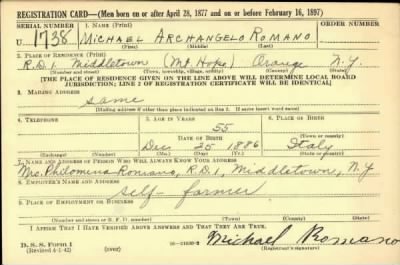 REGISTRATION CARD—(Men born on or after April 28, 1877 and on or before February 16, 1897)
SERIAL NUMBER 1. NAME (Print) ORDER NUMBER
U 1738 MICHAEL ARCHANGELO ROMANO
2. PLACE OF RESIDENCE (Print)
R.D.1 Middletown (Mt Hope) Orange N.Y.
(Number and street) (Town, township, village, or city) (County) (State)
[THE PLACE OF RESIDENCE GIVEN ON THE LINE ABOVE WILL DETERMINE LOCAL BOARD
JURISDICTION; LINE 2 OF REGISTRATION CERTIFICATE WILL BE IDENTICAL]
3. MAILING ADDRESS
same
[Mailing address if other than place indicated on line 2. If same insert word same]
4. TELEPHONE 5. AGE IN YEARS 6. PLACE OF BIRTH
55
DATE OF BIRTH (Town or county)
Dec 25 1886 Italy
(Exchange) (Number) (Mo.) (Day) (Yr.) (State or country)
7. NAME AND ADDRESS OF PERSON WHO WILL ALWAYS KNOW YOUR ADDRESS
Mrs. Philomena Romano, R.D.1, Middletown, N.Y
8. EMPLOYER'S NAME AND ADDRESS
self - farmer
9. PLACE OF EMPLOYMENT OR BUSINESS
(Number and street or R. F. D. number) (Town) (County) (State)
I AFFIRM THAT I HAVE VERIFIED ABOVE ANSWERS AND THAT THEY ARE TRUE.
D. S. S. Form 1
(Revised 4-1-42) (over) Michael Romano
(Registrant's signature)